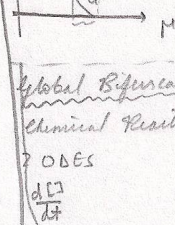 μ
Global Bifurca
Chemical React
? ODEs
d[]
dt